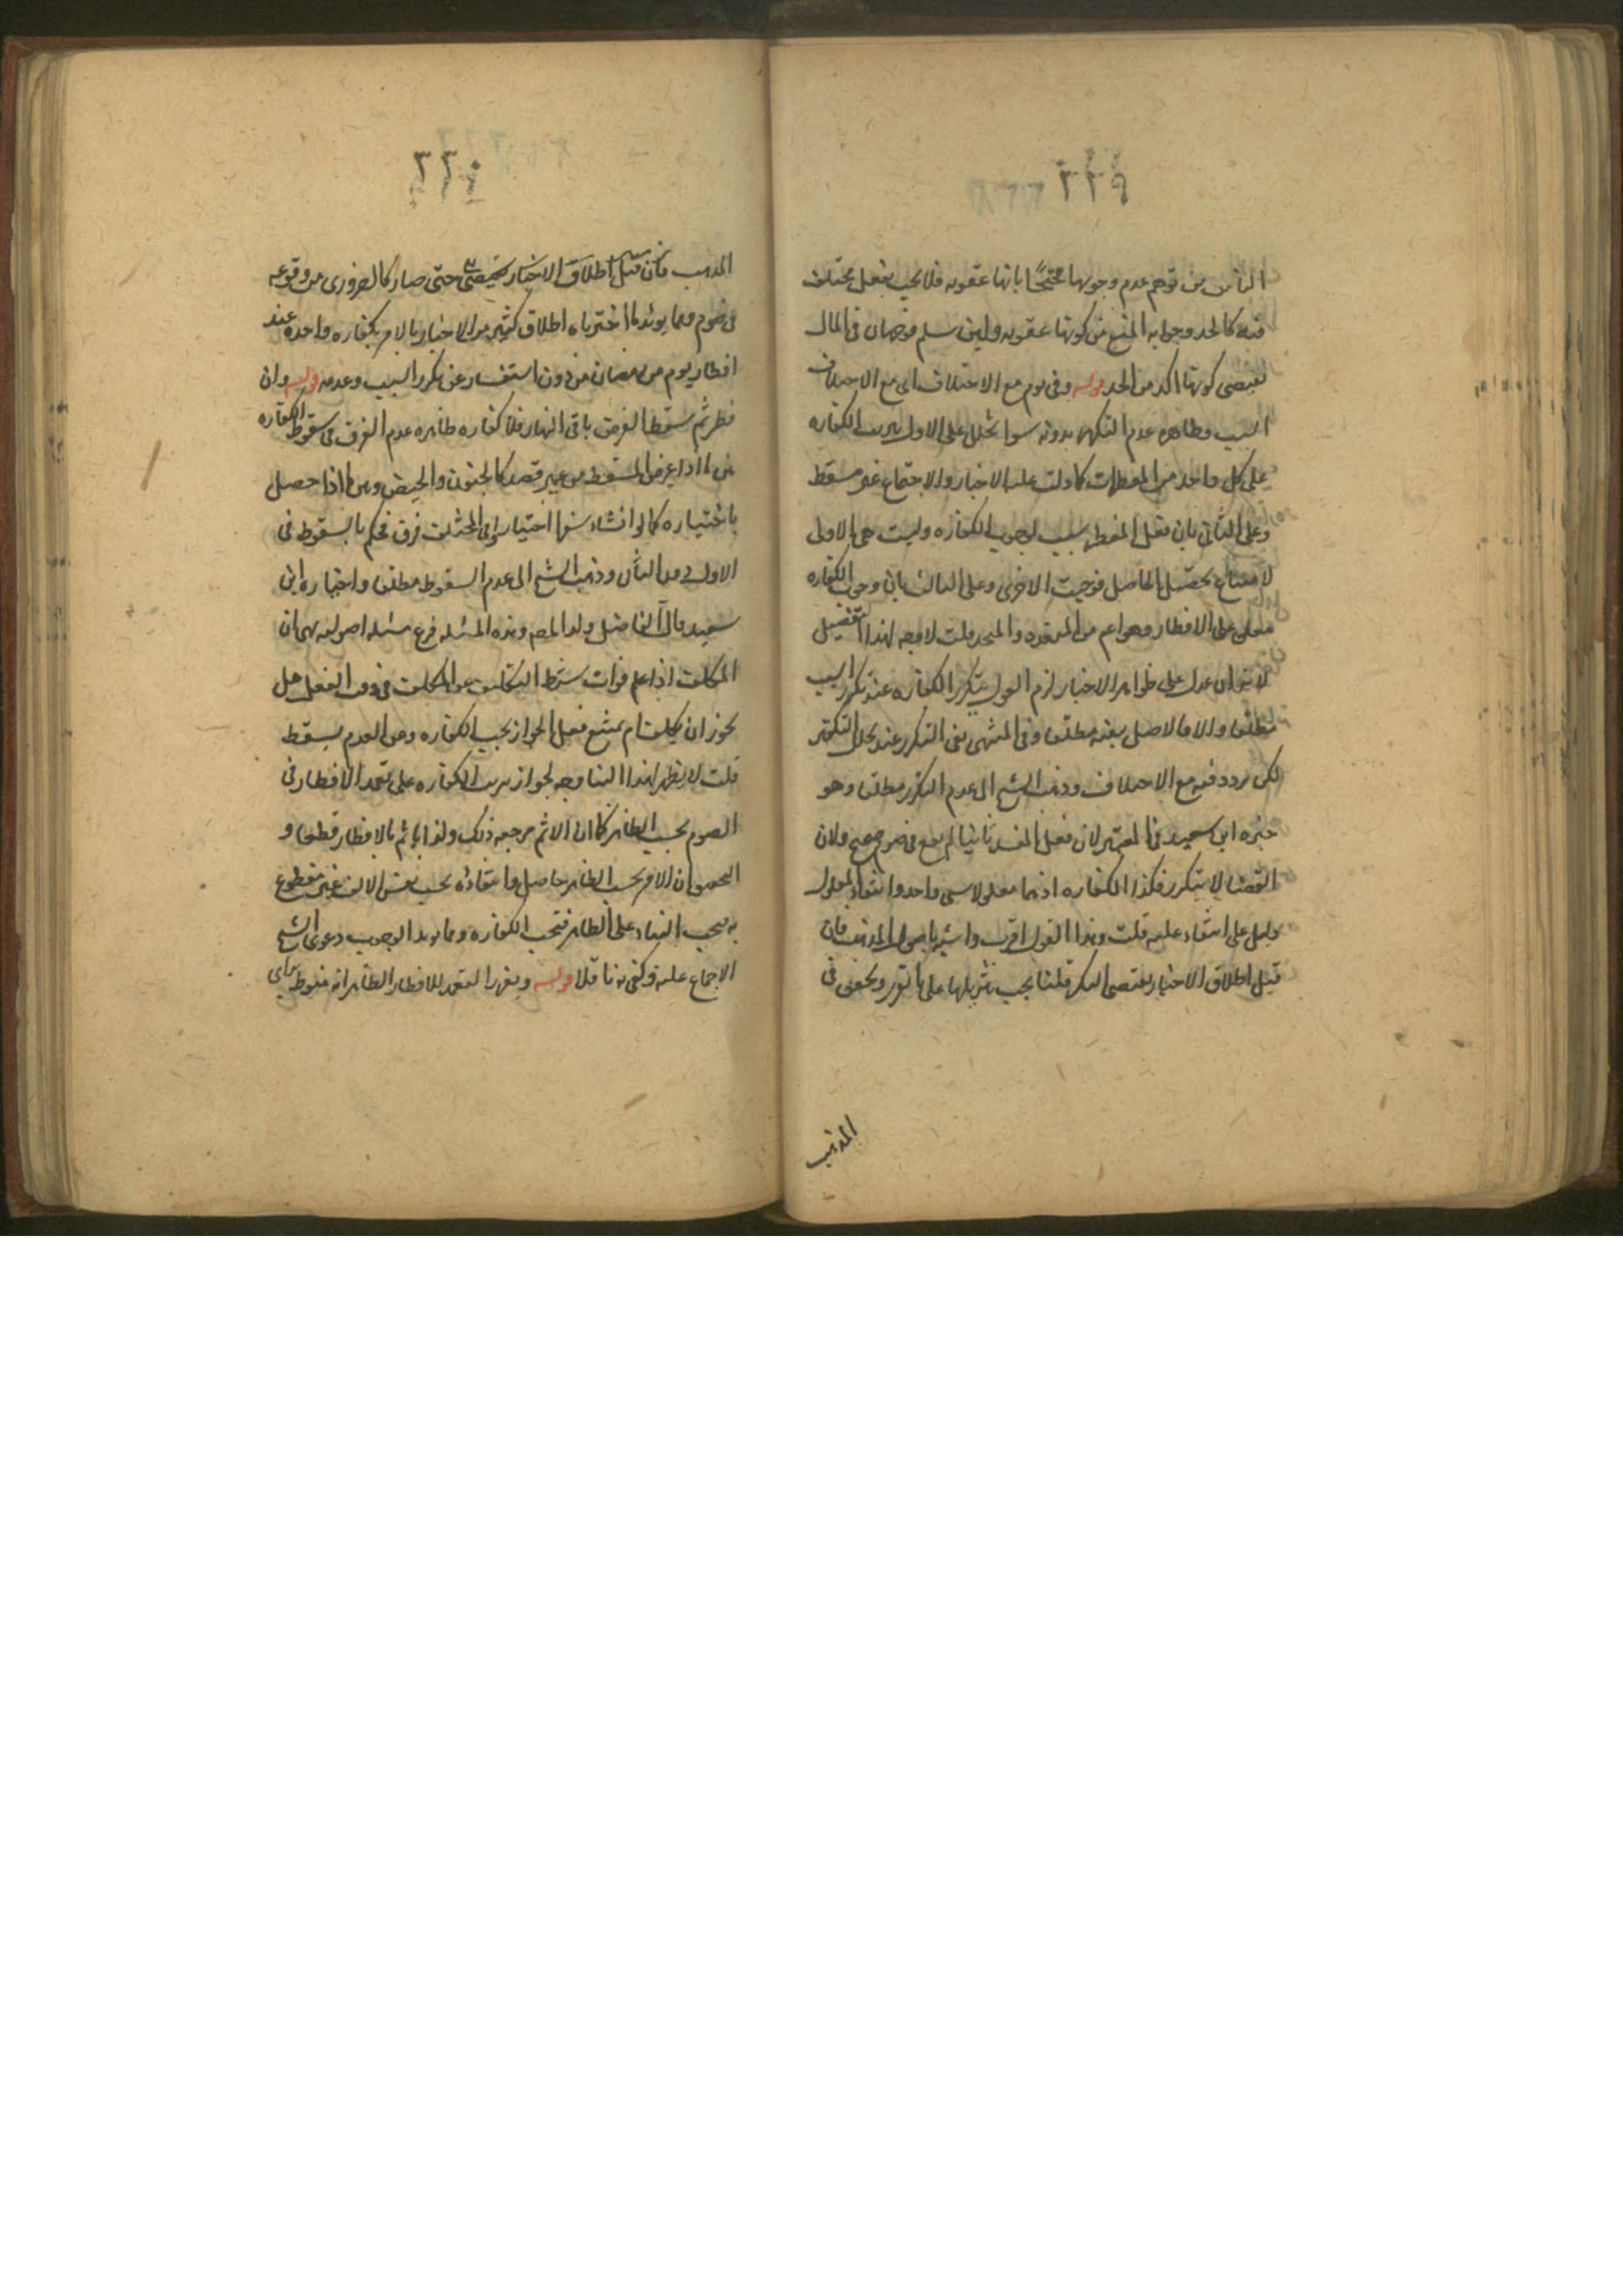 ٢٢٩
الناس من توهم عدم وجوبها محتجا بانها عقوبه فلا يجب بفعل مختلف
فيه كالحد وجوابه المنع من كونها عقوبه ولئن سلم فوجهان في المال
يقتضى كونها اكد من الحد قوله وفى يوم مع الاختلاف اى مع الاختلاف
السبب وظاهره عدم التكرر بدونه سوا تخلل على الاول بترتب الكفاره
على كل واحد من المفطرات كما دلت عليه الاخبار والاجتماع غير مسقط
وعلى الثانى بان فعل المفطر سبب لوجوب الكفاره وليست هى الاولى
لامتناع تحصيل الحاصل فوجبت الاخرى وعلى الثالث بان وجوب الكفاره
معلق على الافطار وهو اعم من المتعدد والمتحد قلت لا وجه لهذا التفصيل
لانه ان عدل على ظواهر الاخبار لزم القول بتكرر الكفاره عند تكرر السبب
مطلقا والا فالاصل ينفيه مطلقا وفى المنتهى نفى التكرر عند تخلل التكفير
لكن تردد فيه مع الاختلاف وذهب الشيخ الى عدم التكرر مطلقا وهو
خيره ابن سعيد فى المعتبر لان فعل المفسد ثانيا لم يقع فى صوم صحيح ولان
القضا لا يتكرر فكذا الكفاره اذ هما معلولا سبب واحد وانتفاء المعلول
دليل على انتفاء علته قلت وهذا القول اقرب واشبه باصول المذهب فان
قيل اطلاق الاخبار يقتضى التكرر قلنا يجب تنزيلها على ما تقرر وتحقق فى
المذهب
٢٢٠
المذهب فان قيل اطلاق الاخبار يقتضى حتى صار كالضرورى من وقوعه
فى صوم ومما يؤيد ما اخترناه اطلاق كثير من الاخبار بالامر بكفاره واحده عند
افطار يوم من رمضان من دون استفسار عن تكرر السبب وعدمه قوله وان
فطر ثم سقط الفرض باقى النهار فلا كفاره ظاهره عدم الفرق فى سقوط الكفاره
بين ما اذا عرض المسقط من غير قصد كالجنون والحيض وبين ما اذا حصل
باختياره كما لو انشاء سفرا اختياريا وفى المختلف فرق فحكم بالسقوط فى
الاول دون الثانى وذهب الشيخ الى عدم السقوط مطلقا واختاره ابن
سعيد قال الفاضل ولد المصم وهذه المسئله فرع مسئله اصوليه هى ان
المكلف اذا علم فوات شرط التكليف عن المكلف فى وقت الفعل هل
يجوز ان يكلف ام يمتنع فعلى الجواز يجب الكفاره وعلى العدم يسقط
قلت لا يظهر لهذا البنا وجه لجواز ترتب الكفاره على تعمد الافطار فى
الصوم بحسب الظاهر كما ان الاثم مرجعه ذلك ولذا ياثم بالافطار قطعا و
التحقيق ان الامر بحسب الظاهر حاصل وانتفاؤه بحسب نفس الامر غير مقطوع
به فيجب البناء على الظاهر فتجب الكفاره ومما يؤيد الوجوب دعوى الشيخ
الاجماع عليه وكفى به ناقلا قوله ويعزر المتعمد للافطار الظاهر انه منوط براى